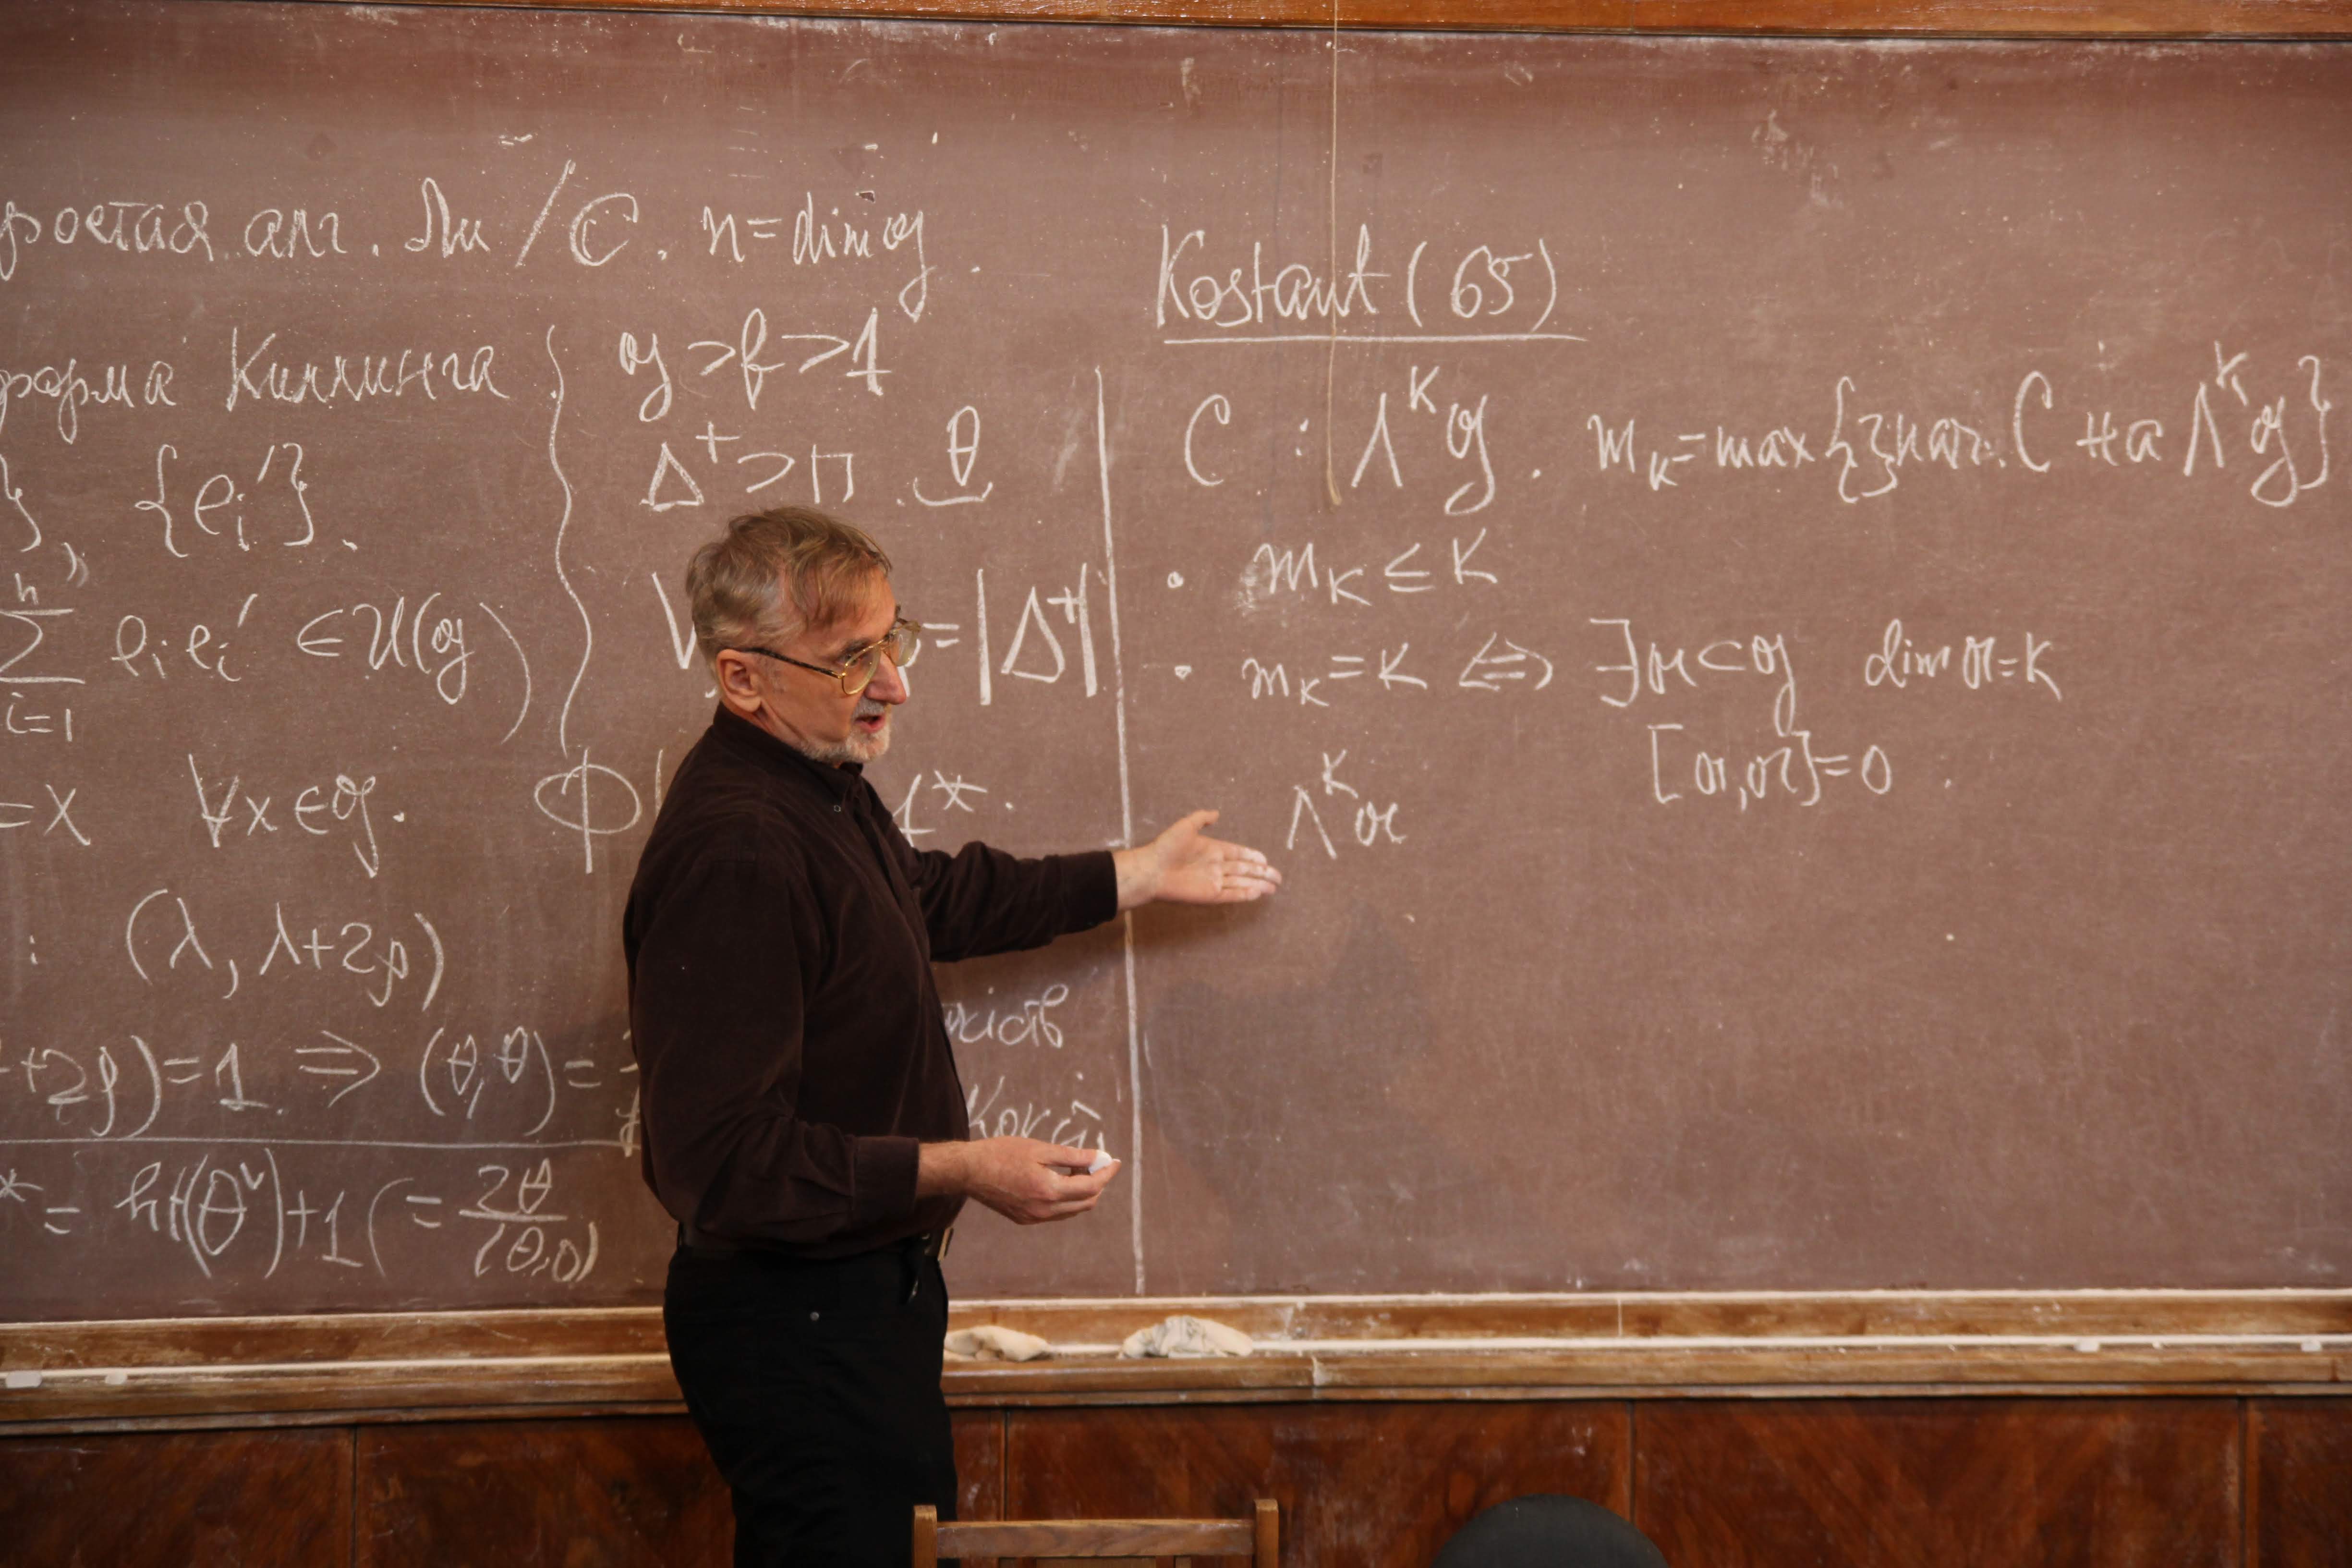 простая алг. Ли / ℂ. n = dim 𝔤.
форма Киллинга
}, {eᵢ'}.
∑ᵢ₌₁ⁿ eᵢeᵢ' ∈ U(𝔤)
= x ∀x ∈ 𝔤.
: (λ, λ+2ρ)
+2ρ) = 1. ⇒ (θ,θ) =
* = ht(θ^∨)+1 (= 2θ/(θ,θ)
𝔤 > 𝔟 > 𝔱
Δ⁺ > Π. θ
= |Δ⁺|
𝔱*.
Kostant (65)
C : Λᵏ𝔤. mₖ = max {знач. C на Λᵏ𝔤}
• mₖ ≤ k
• mₖ = k ⇔ ∃𝔞 ⊂ 𝔤 dim 𝔞 = k
[𝔞,𝔞] = 0.
Λᵏ𝔞